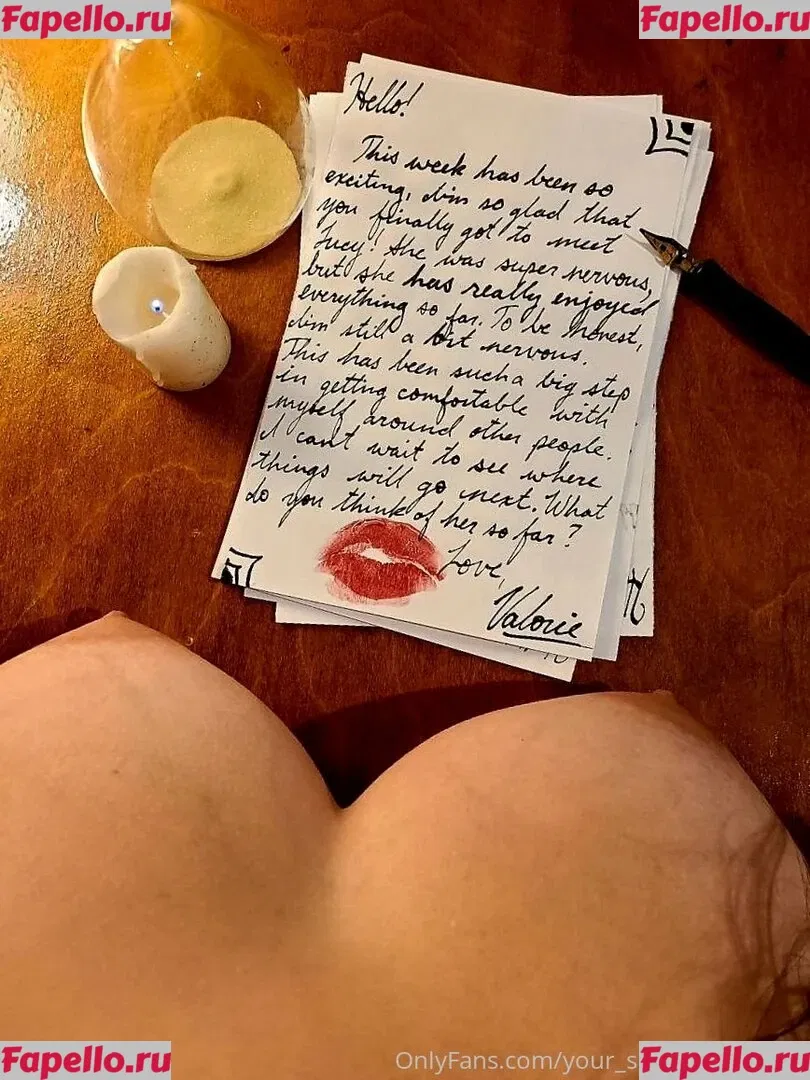 Fapello.ru
Fapello.ru
Hello!
This week has been so
exciting, I'm so glad that
you finally got to meet
Lucy! She was super nervous,
but she has really enjoyed
everything so far. To be honest,
I'm still a bit nervous.
This has been such a big step
in getting comfortable with
myself around other people.
I can't wait to see where
things will go next. What
do you think of her so far?
Love,
Valorie
Fapello.ru
OnlyFans.com/your_s
Fapello.ru